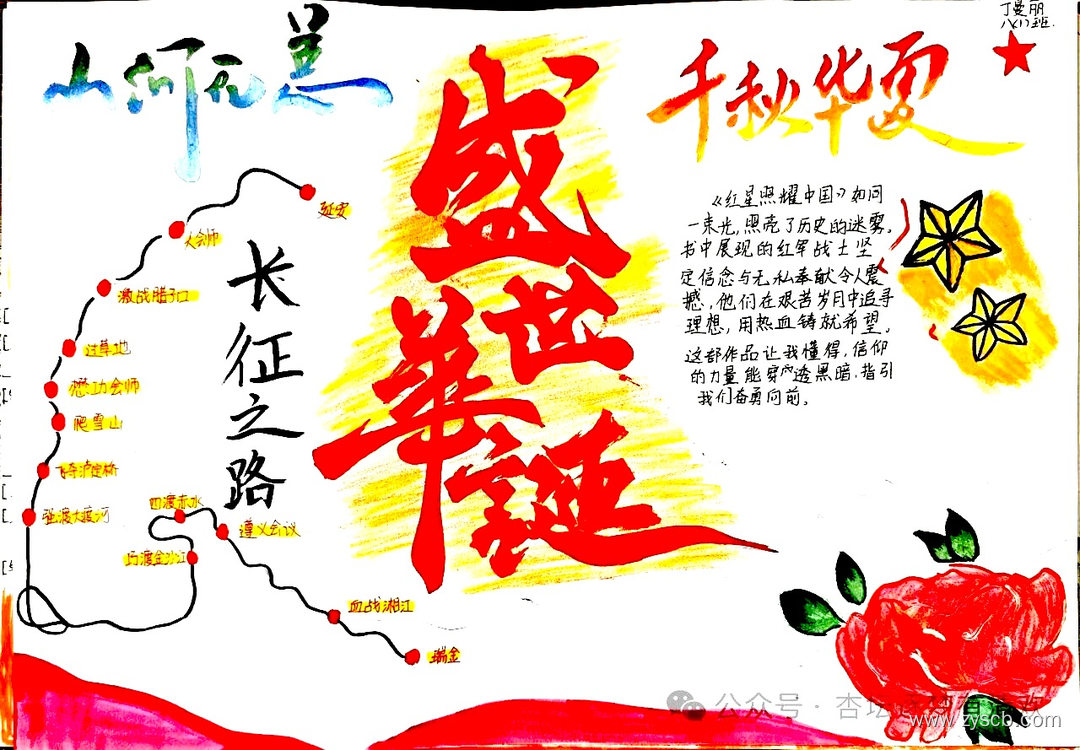 丁曼丽
八(1)班
山河无恙
千秋华夏
盛世華誕
长征之路
延安
大会师
激战腊子口
过草地
懋功会师
爬雪山
飞夺泸定桥
强渡大渡河
四渡赤水
遵义会议
巧渡金沙江
血战湘江
瑞金
《红星照耀中国》如同
一束光,照亮了历史的迷雾。
书中展现的红军战士坚
定信念与无私奉献令人震
撼,他们在艰苦岁月中追寻
理想,用热血铸就希望。
这部作品让我懂得,信仰
的力量能穿透黑暗,指引
我们奋勇向前。
公众号·杏坛
www.zyscb.com